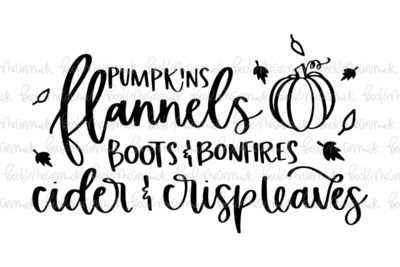 PUMPKINS
flannels
BOOTS & BONFIRES
cider & crisp leaves